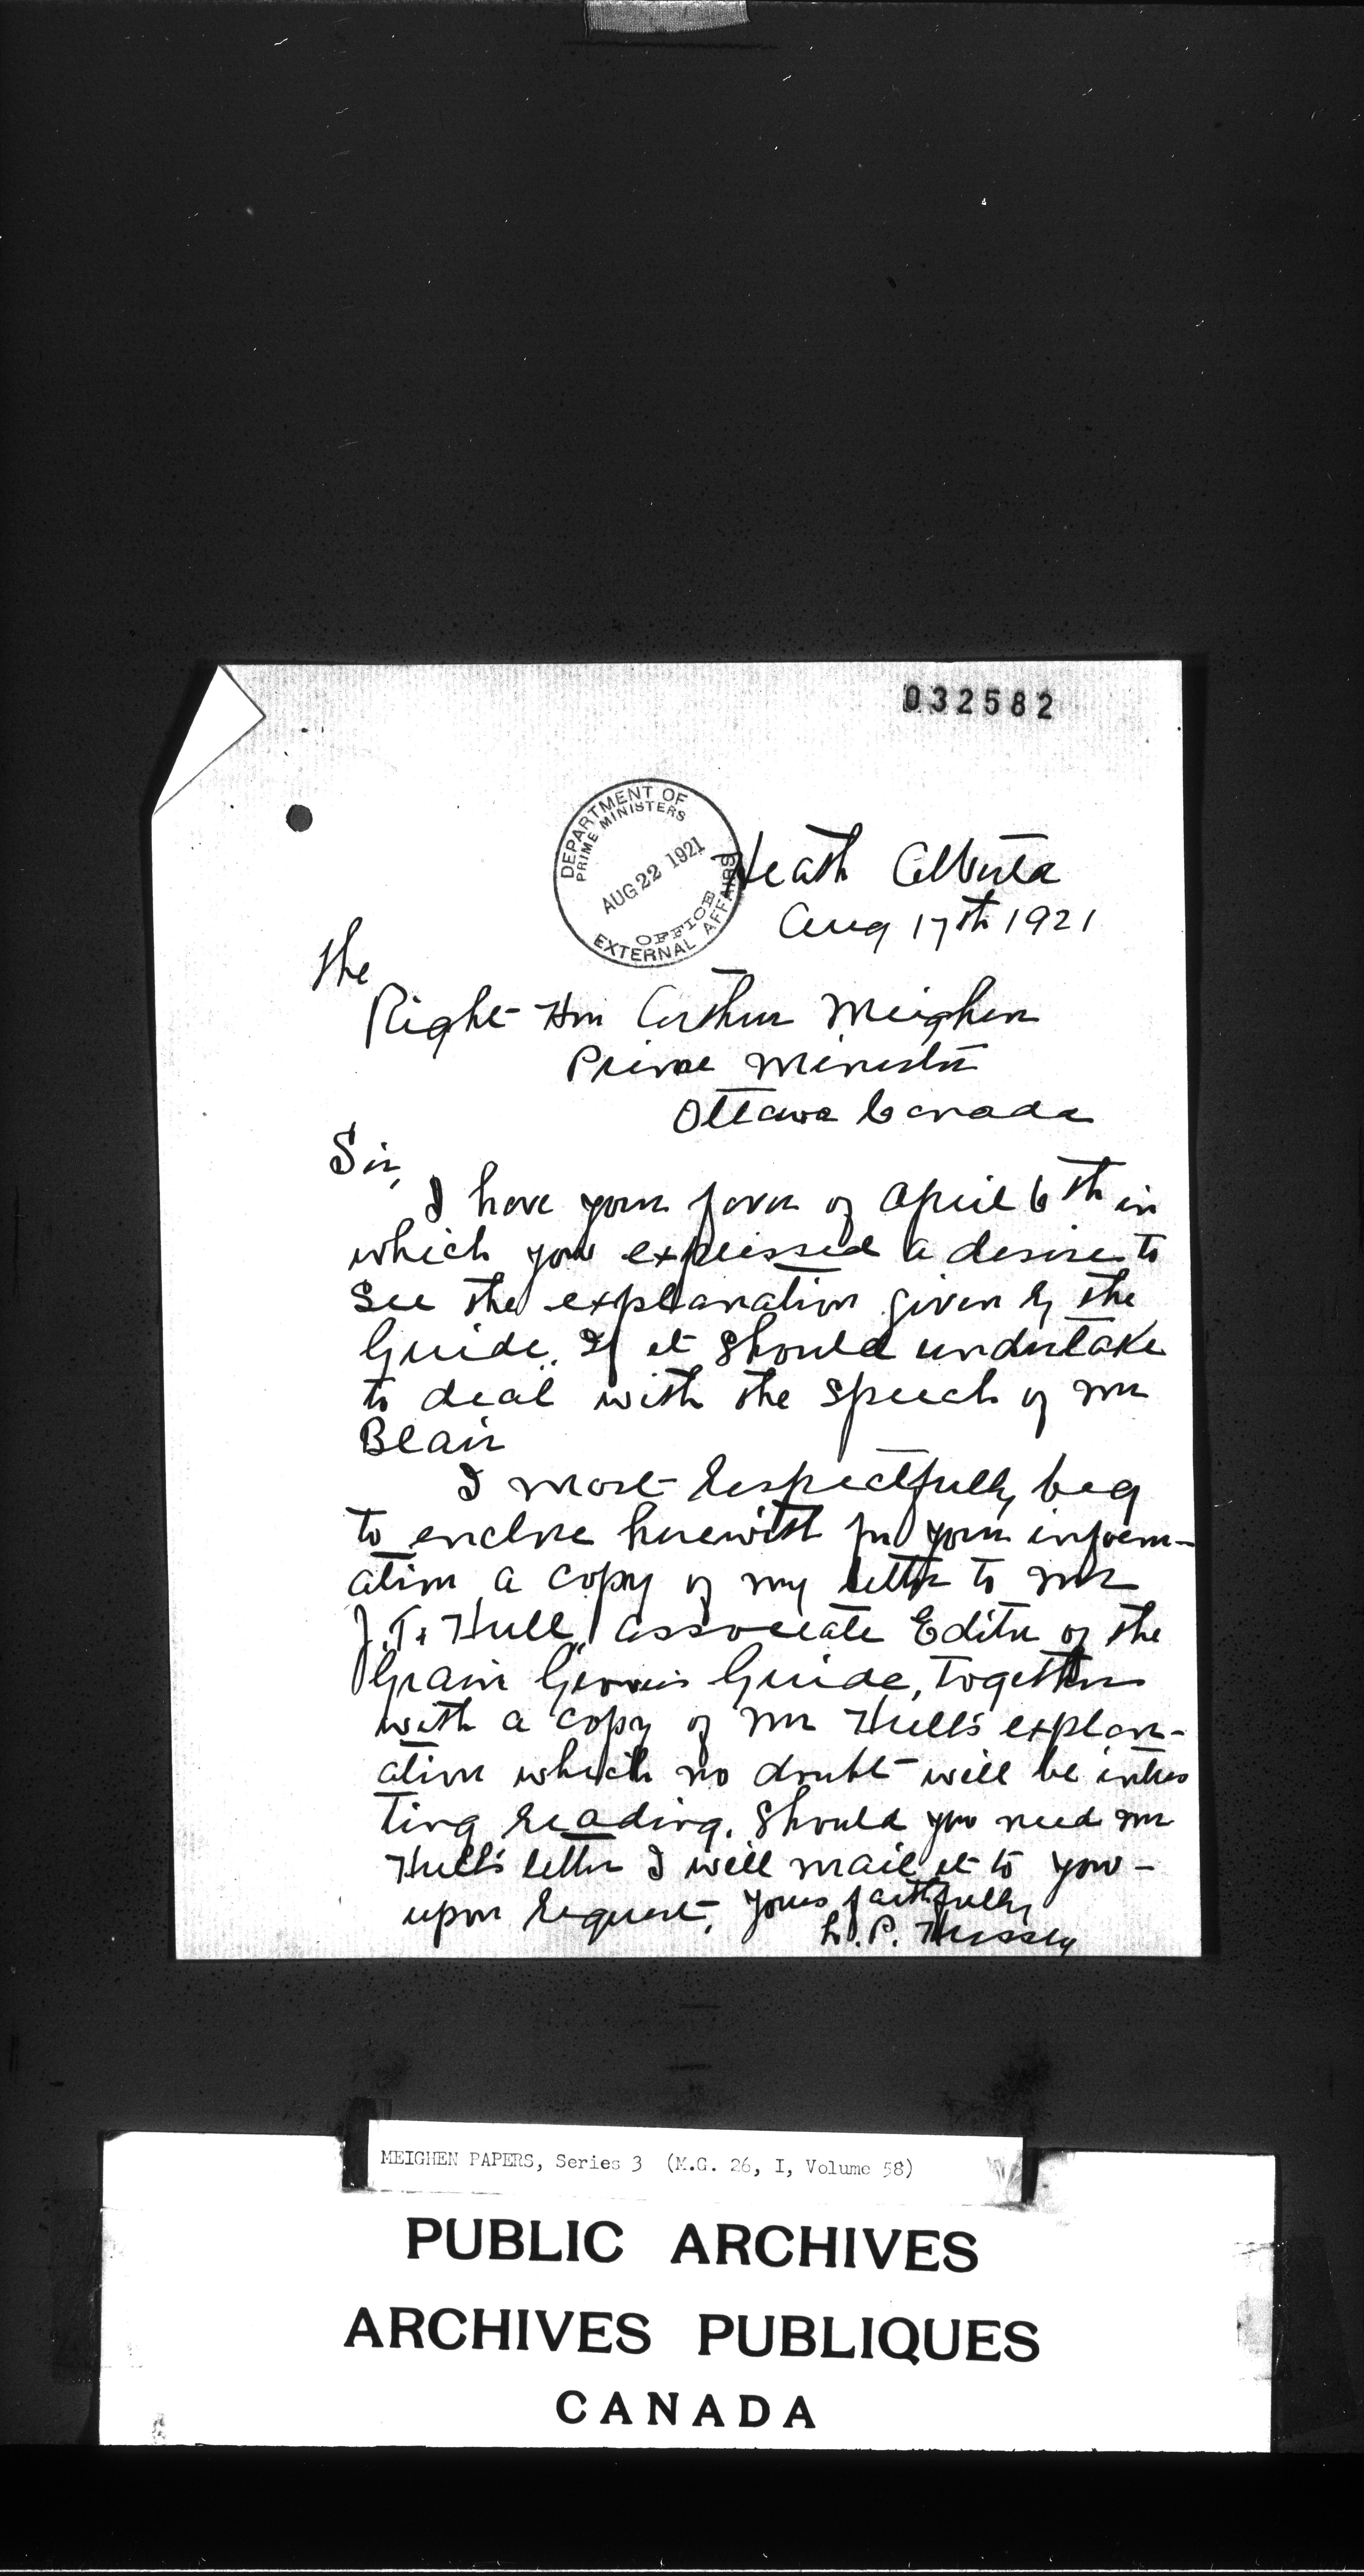 032582
DEPARTMENT OF
PRIME MINISTERS
AUG 22 1921
OFFICE
EXTERNAL AFFAIRS
Heath Alberta
Aug 17th 1921
The
Right Hon Arthur Meighen
Prime Minister
Ottawa Canada
Sir,
I have your favor of April 6th in
which you expressed a desire to
see the explanation given by the
Guide. If it should undertake
to deal with the speech of Mr
Blair
I most respectfully beg
to enclose herewith for your inform-
ation a copy of my letter to Mr
J. T. Hull associate Editor of the
Grain Growers Guide, together
with a copy of Mr Hull's explan-
ation which no doubt will be interes
ting reading. Should you need Mr
Hull's letter I will mail it to you -
upon request. Yours faithfully
P. Hussey
MEIGHEN PAPERS, Series 3 (M.G. 26, I, Volume 58)
PUBLIC ARCHIVES
ARCHIVES PUBLIQUES
CANADA